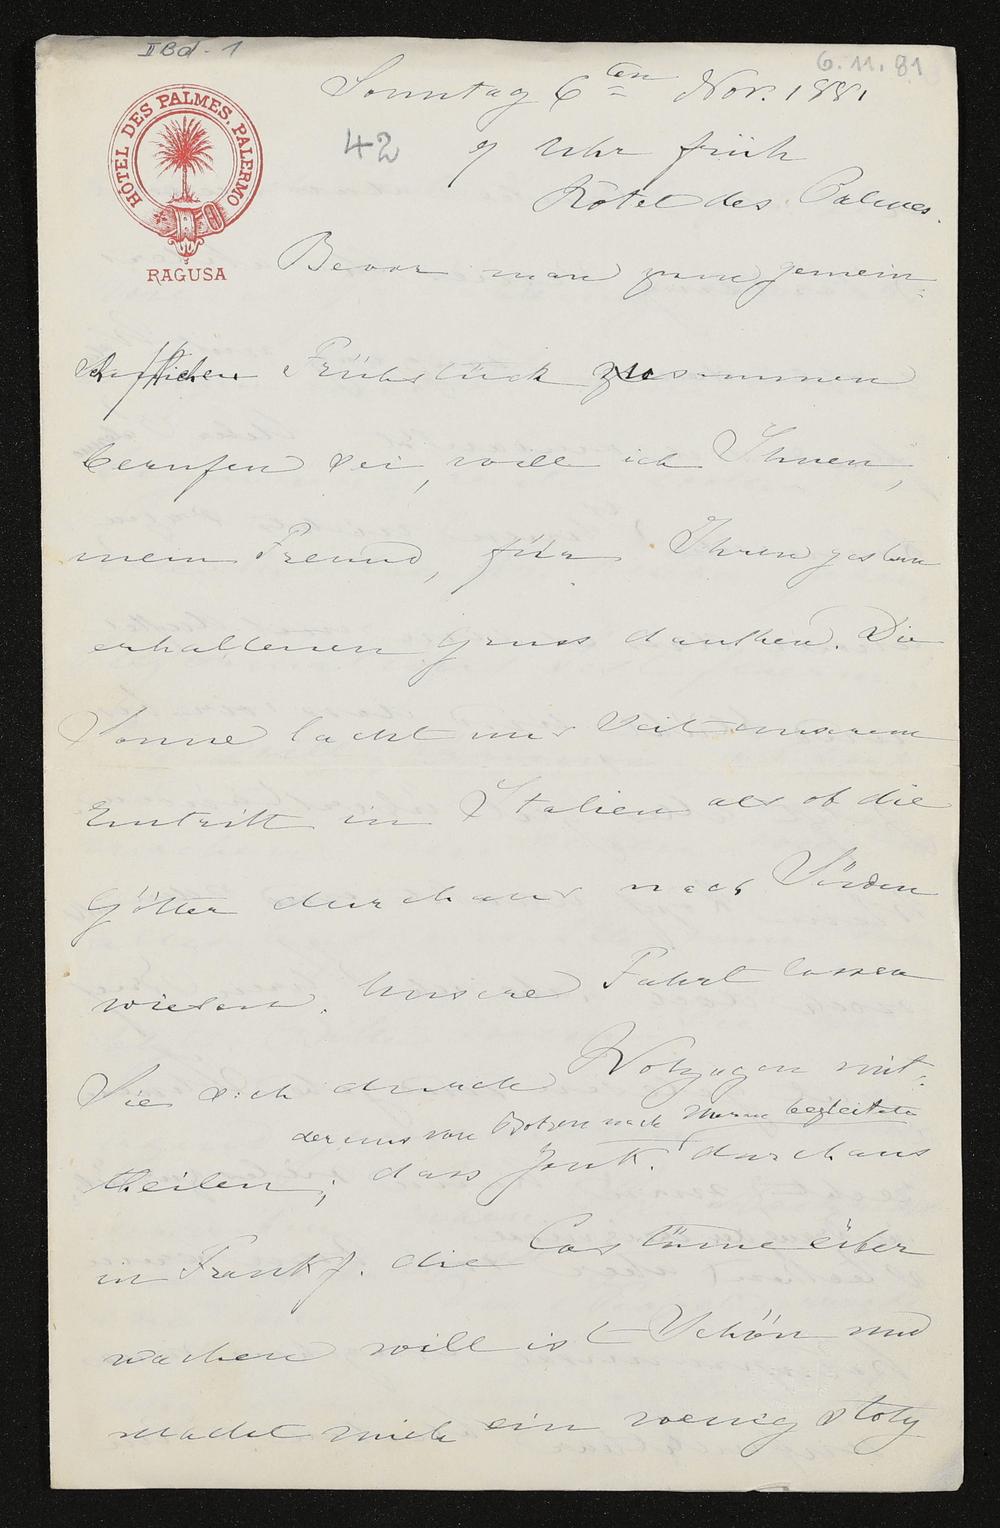 II Bd. 1
6.11.81
HÔTEL DES PALMES. PALERMO
RAGUSA
Sonntag 6ten Nov. 1881
42
9 Uhr früh
Hôtel des Palmes.
Bevor man zum gemein:
schaftlichen Frühstück zusammen
berufen sei, will ich Ihnen,
mein Freund, für Ihren gestern
erhaltenen Gruss danken. Die
Sonne lacht uns seit unserem
Eintritt in Italien als ob die
Götter durchaus nach Süden
wiesen. Unsere Fahrt lassen
Sie sich durch Wolzogen mit:
der uns von Botzen nach Verona begleitete
theilen; dass Jouk. durchaus
in Frankf. die Costüme über
wachen will ist schön und
macht mich ein wenig stolz